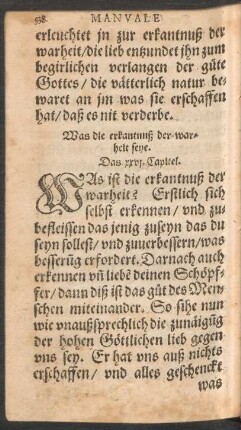 538. MANVALE
erleuchtet jn zur erkantnuß der
warheit/die lieb enzundet jhn zum
begirlichen verlangen der güte
Gottes/die vätterlich natur be-
waret an jm was sie erschaffen
hat/daß es nit verderbe.
Was die erkantnuß der war-
heit seye.
Das xxvj. Capitel.
WAs ist die erkantnuß der
warheit? Erstlich sich
selbst erkennen/ vnd zu-
befleissen das jenig zuseyn das du
seyn sollest/ vnd zuuerbessern/was
besserũg erfordert. Darnach auch
erkennen vñ liebẽ deinen Schöpf-
fer/dann diß ist das gůt des Men-
schen miteinander. So sihe nun
wie vnaußsprechlich die zunäigũg
der hohen Göttlichen lieb gegen
vns sey. Er hat vns auß nichts
erschaffen/ vnd alles geschenckt
was